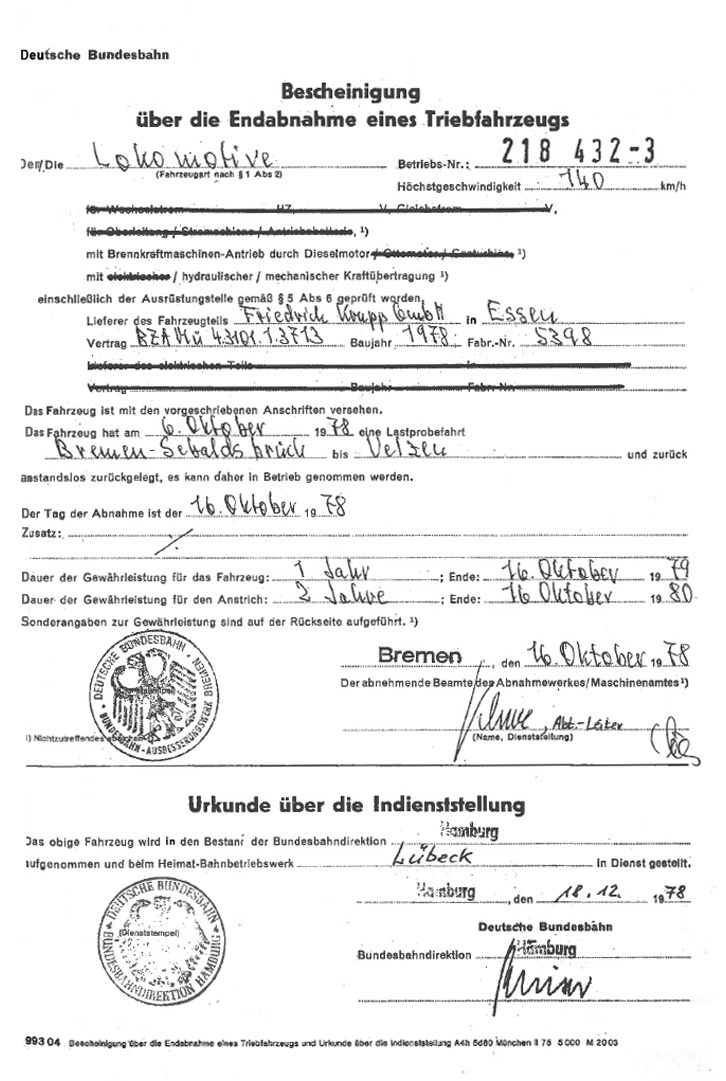 Deutsche Bundesbahn
Bescheinigung
über die Endabnahme eines Triebfahrzeugs
Der/Die Lokomotive Betriebs-Nr.: 218 432-3
(Fahrzeugart nach § 1 Abs 2)
Höchstgeschwindigkeit 140 km/h
für Wechselstrom HZ, V, Gleichstrom V,
für Oberleitung / Stromschiene / Antriebsbatterie, ¹)
mit Brennkraftmaschinen-Antrieb durch Dieselmotor / Ottomotor / Gasturbine, ¹)
mit elektrischer / hydraulischer / mechanischer Kraftübertragung ¹)
einschließlich der Ausrüstungsteile gemäß § 5 Abs 6 geprüft worden.
Lieferer des Fahrzeugteils Friedrich Krupp GmbH in Essen
Vertrag BZA Mü 43101.1.3713 Baujahr 1978 Fabr.-Nr. 5398
Lieferer des elektrischen Teils in
Vertrag Baujahr Fabr.-Nr.
Das Fahrzeug ist mit den vorgeschriebenen Anschriften versehen.
Das Fahrzeug hat am 6. Oktober 1978 eine Lastprobefahrt
Bremen-Sebaldsbrück bis Uelzen und zurück
anstandslos zurückgelegt, es kann daher in Betrieb genommen werden.
Der Tag der Abnahme ist der 16. Oktober 1978
Zusatz:
Dauer der Gewährleistung für das Fahrzeug: 1 Jahr ; Ende: 16. Oktober 1979
Dauer der Gewährleistung für den Anstrich: 2 Jahre ; Ende: 16 Oktober 1980
Sonderangaben zur Gewährleistung sind auf der Rückseite aufgeführt. ¹)
DEUTSCHE BUNDESBAHN
BUNDESBAHN-AUSBESSERUNGSWERK BREMEN
Bremen, den 16. Oktober 1978
Der abnehmende Beamte des Abnahmewerkes/Maschinenamtes ¹)
, Abt.-Leiter
(Name, Dienststellung)
¹) Nichtzutreffendes
Urkunde über die Indienststellung
Das obige Fahrzeug wird in den Bestand der Bundesbahndirektion Hamburg
aufgenommen und beim Heimat-Bahnbetriebswerk Lübeck in Dienst gestellt.
Hamburg, den 18.12. 1978
DEUTSCHE BUNDESBAHN
(Dienststempel)
BUNDESBAHNDIREKTION HAMBURG
Deutsche Bundesbahn
Bundesbahndirektion Hamburg
993 04 Bescheinigung über die Endabnahme eines Triebfahrzeugs und Urkunde über die Indienststellung A4h 5d80 München II 75 5 000 M 2003